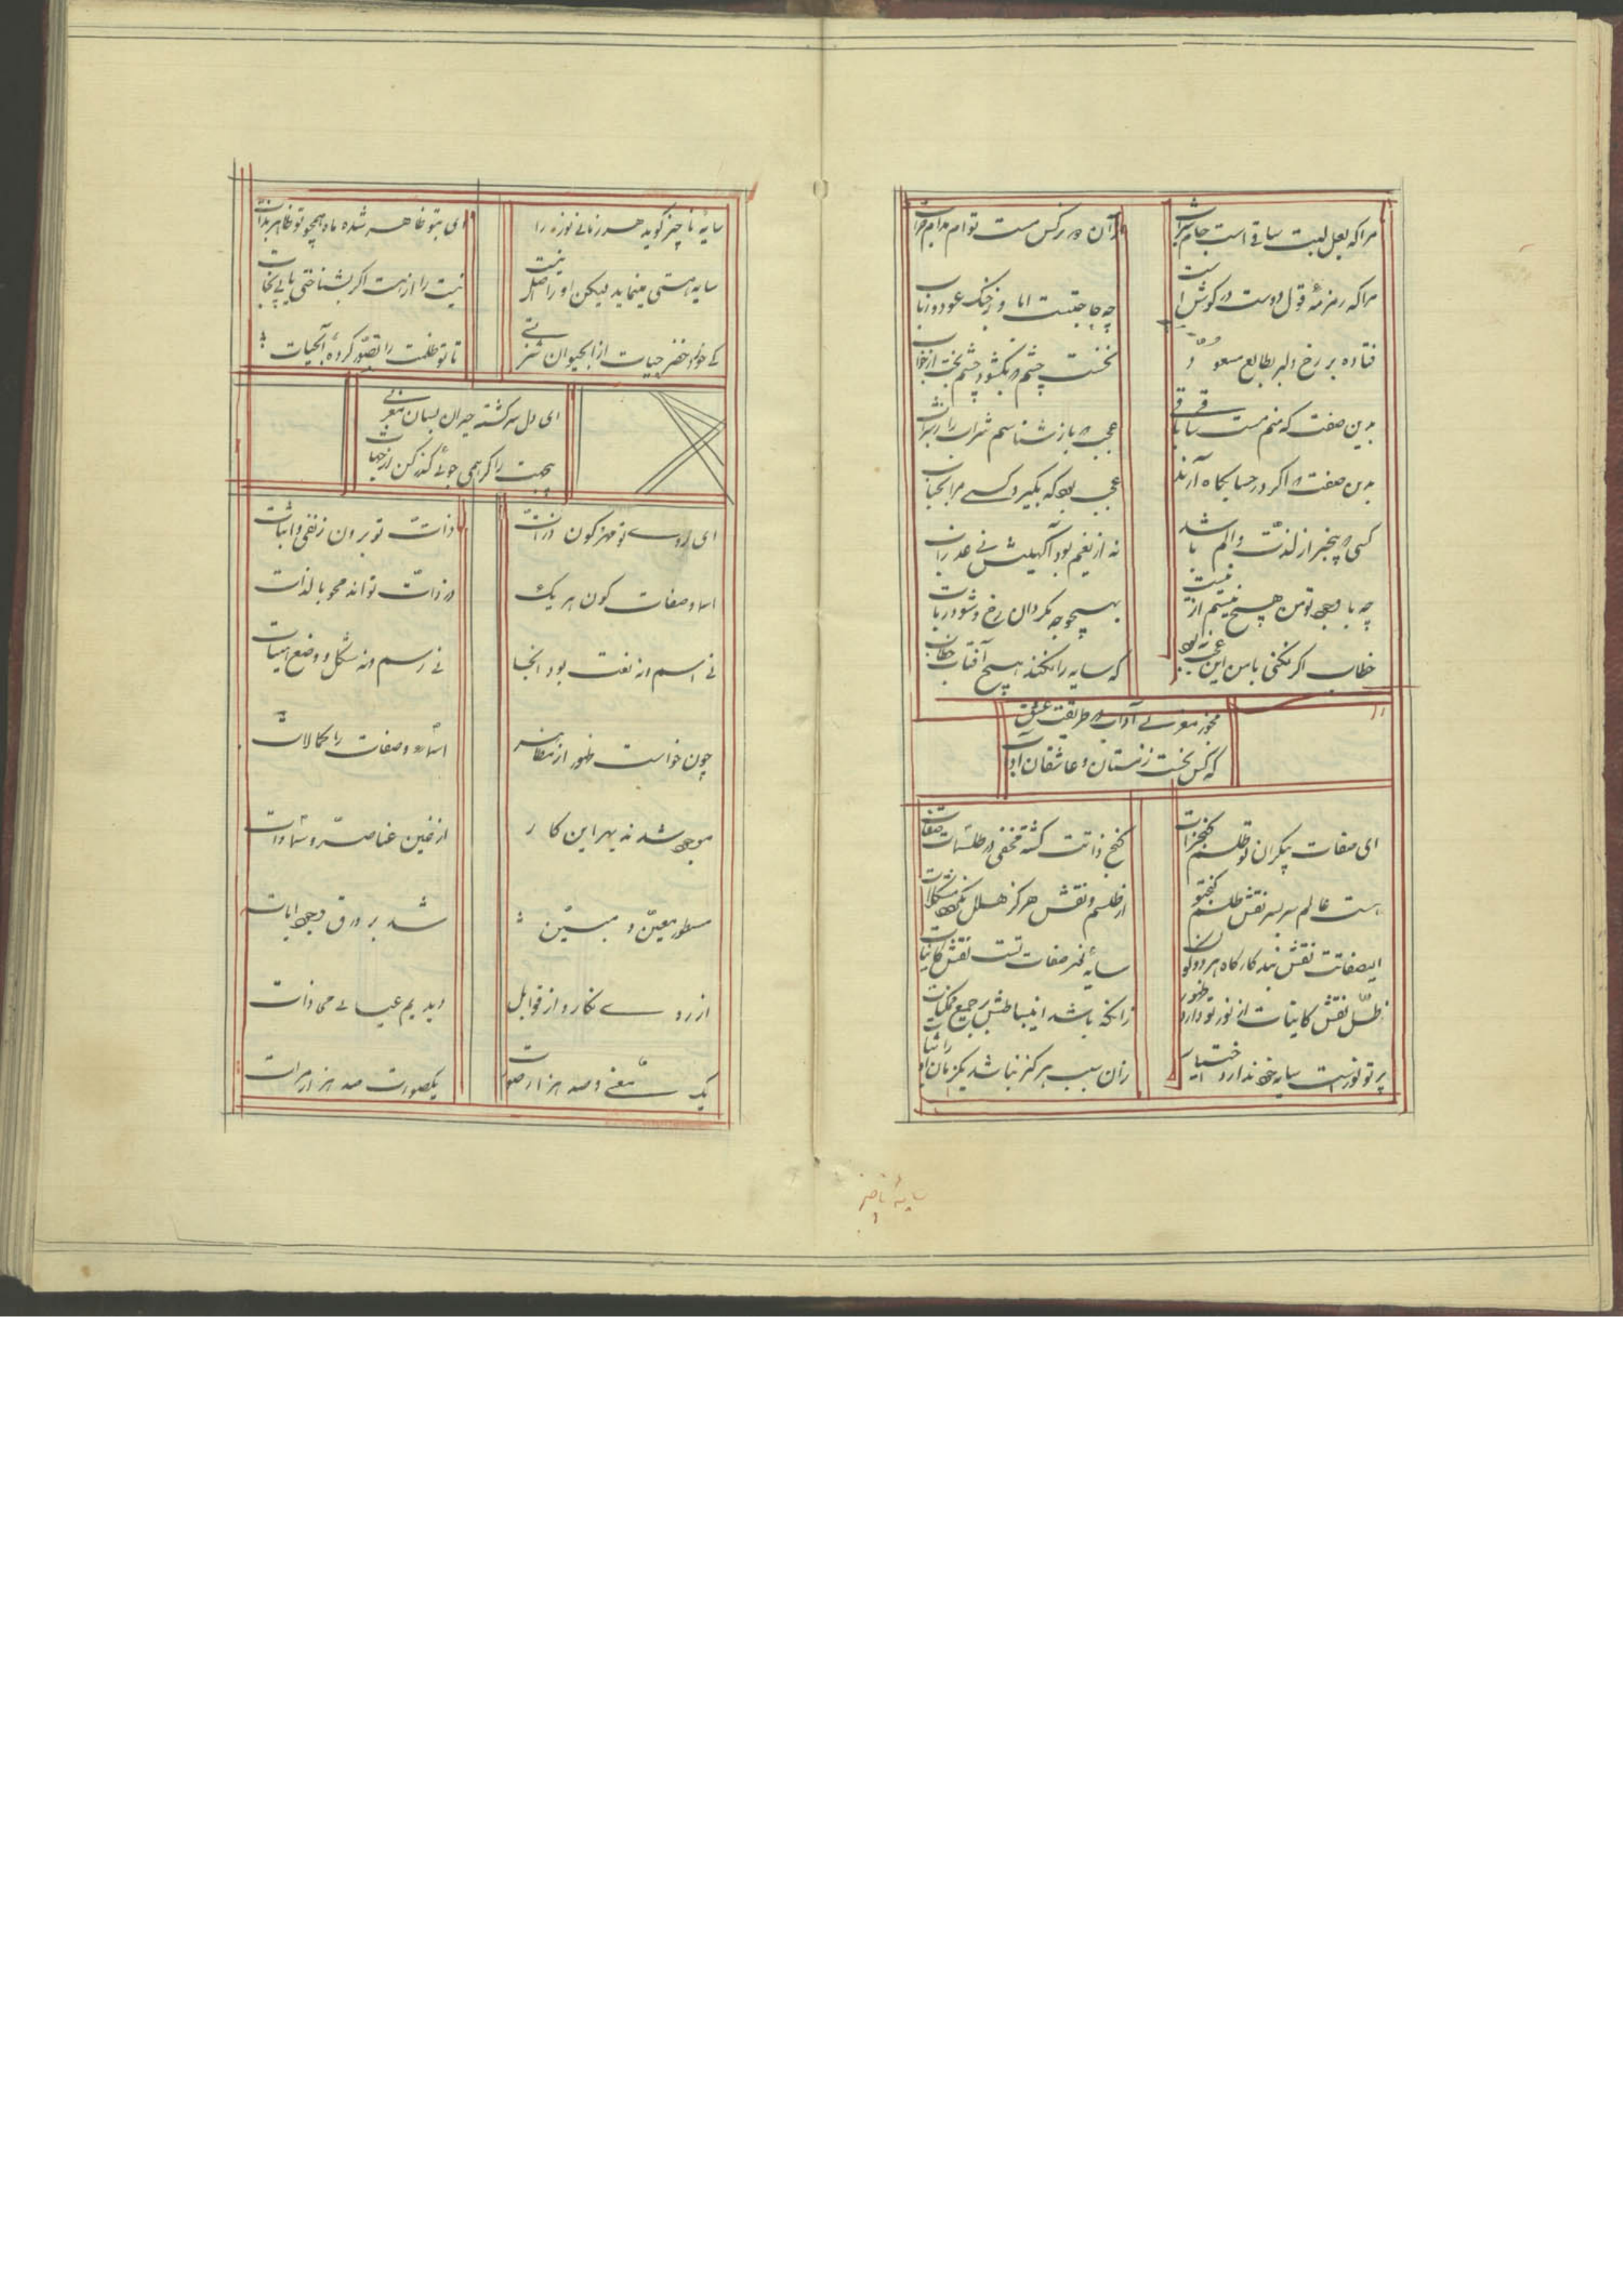 مرا که لعل لبت ساقی است جام شراب
از آن دو نرکس مست توام مدام خراب
مرا که زمزمهٔ قول دوست در کوش است
چه حاجتست اما و زچنک عود و رباب
فتاده بر رخ دلبر بطالع مسعود
نخست چشم بکشود چشم بخت از خواب
بدین صفت که منم مست ساقی باقی
عجب باز شناسم شراب را ز سراب
بدین صفت اکر در حسابکاه آرند
عجب بود که بکیرد کسی مرا بحساب
کسی بیخبر از لذت و الم باشد
نه از نعیم بود آکهیش نی عذاب
چه با وجود تو من هیچ نیستم از نیست
بهیچوجه مکردان رخ و مشو در تاب
خطاب اکر نکنی با من این عجب نبود
که سایه را نکند هیچ آفتاب خطاب
مجوز مغربی آداب در طریقت عشق
که کس نجست زمستان و عاشقان آداب
ای صفات بیکران تو طلسم کنج ذات
کنج ذاتت کشته مخفی در طلسمات صفات
هست عالم سر بسر نقش طلسم کنج تو
از طلسم و نقش هرکز هل نکشود مشکلات
ایصفاتت نقش بند کارکاه هر دو کون
سایهٔ صفات تست نقش کاینات
ظل نقش کاینات از نور تو دارد ظهور
زانکه باشد انبساطش بر جمیع ممکنات
پرتو نورست سایه خود ندارد اختیار
زان سبب هرکز نباشد یکزمان او را ثبات
سایهٔ ناچیز
سایهٔ ناچیز کوید هر زمانی نوز را
ای بتو ظاهر شده ماه همچو تو ظاهر بذات
سایه هستی مینماید لیکن او را اصل نیست
نیست را از هست اکر بشناختی یابی نجات
کی خورد خضر حیات از آبحیوان شربتی
تا تو ظلمت را تصور کردهٔ آبحیات
ای دل سرکشته حیران بسان مغربی
بیجهت را کر همی جوئی کذر کن از جهات
ای روی تو مهر کون ذرات
ذات تو برون ز نفی و اثبات
اسما و صفات کون هر یک
در ذات تو اند محو بالذات
نی اسم و نه نعت بود آنجا
نی رسم و نه شکل و وضع و هیات
چون خواست ظهور از مظاهر
اسماء و صفات را کمالات
موجود شدند بهر این کار
از غین عناصر و سماوات
مسطور معین و مبین
شد بر ورق وجود ایات
از روی نکار و از قوابل
دیدیم عیا لی می ذات
یک معنی و صد هزار صورت
یکصورت صد هزار مرات